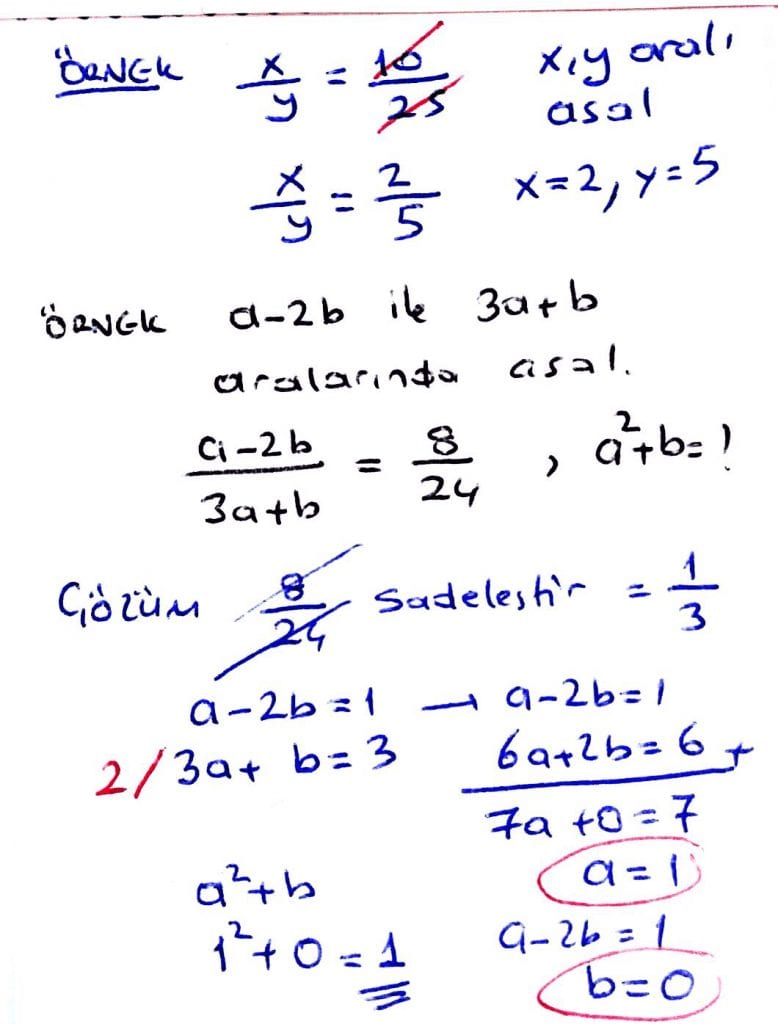 ÖRNEK x/y = 10/25 x,y aralı
asal
x/y = 2/5 x=2, y=5
ÖRNEK a-2b ile 3a+b
aralarında asal.
a-2b/3a+b = 8/24 , a²+b=!
Çözüm 8/24 sadeleştir = 1/3
a-2b=1 → a-2b=1
2/ 3a+ b=3 6a+2b=6 +
7a+0=7
a²+b a=1
1²+0=1 a-2b=1
b=0